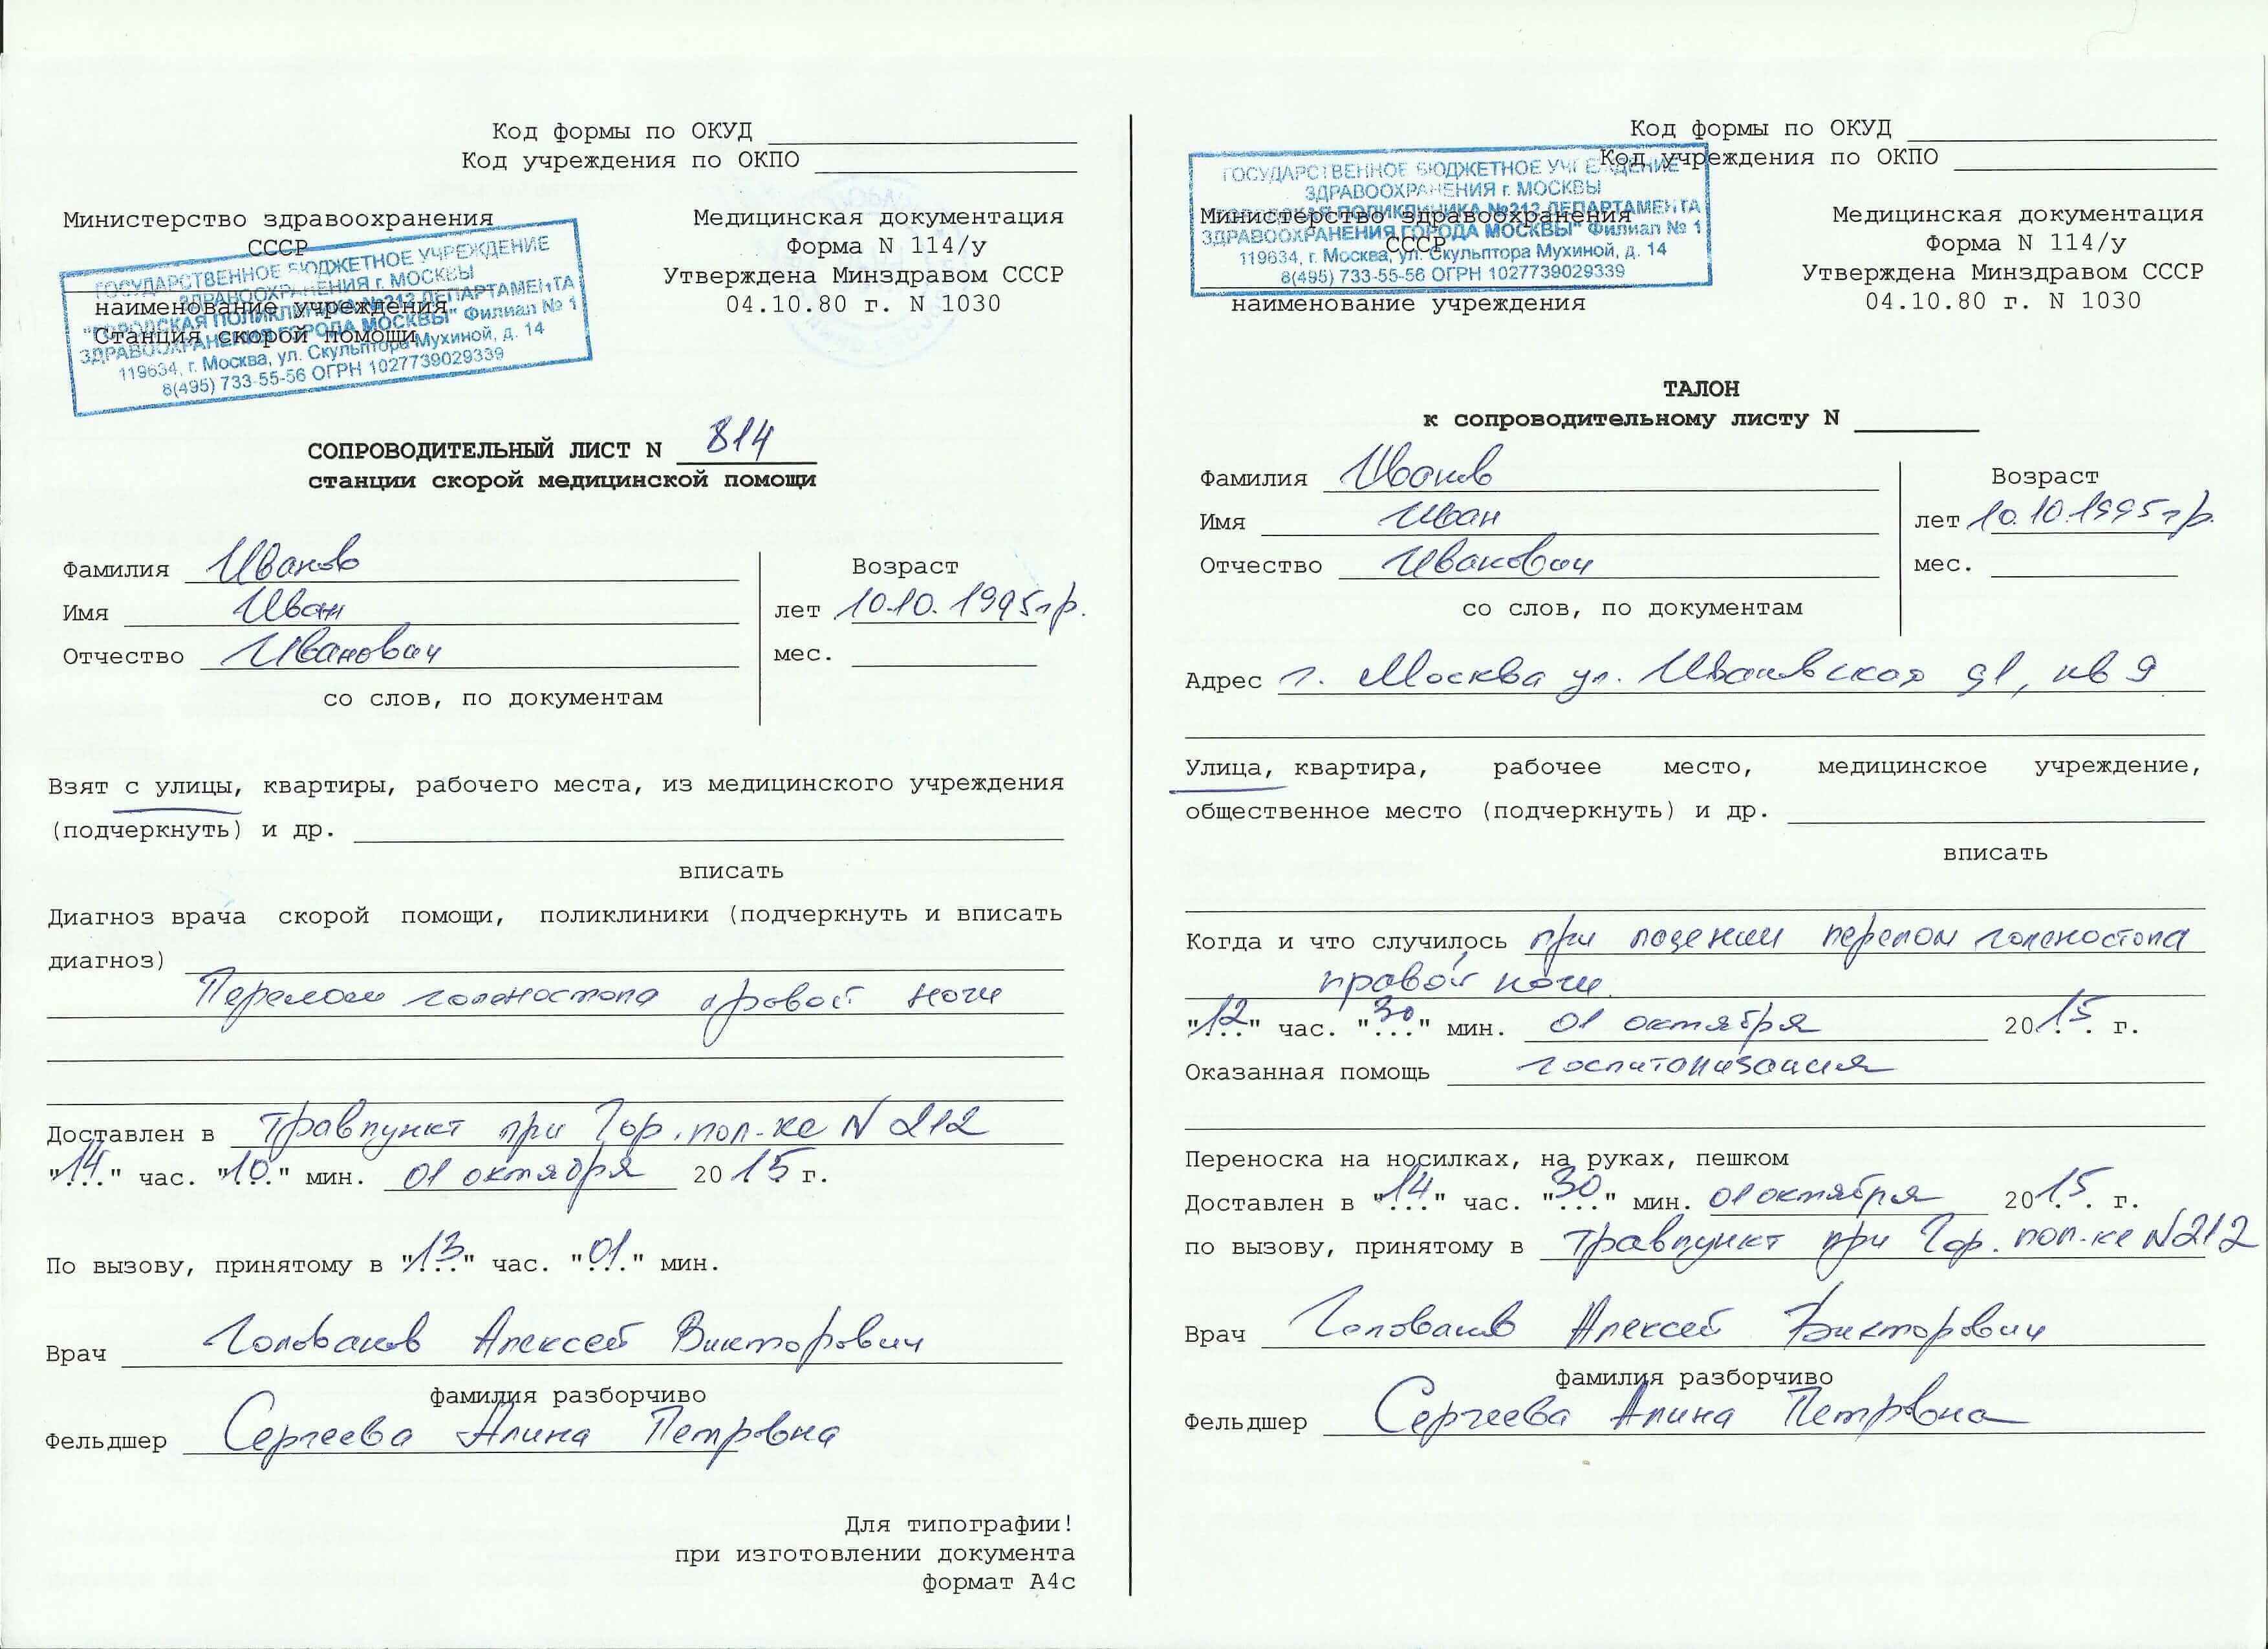 Код формы по ОКУД
Код учреждения по ОКПО
Министерство здравоохранения
СССР
Медицинская документация
Форма N 114/у
Утверждена Минздравом СССР
04.10.80 г. N 1030
ГОСУДАРСТВЕННОЕ БЮДЖЕТНОЕ УЧРЕЖДЕНИЕ
ЗДРАВООХРАНЕНИЯ г. МОСКВЫ
"ГОРОДСКАЯ ПОЛИКЛИНИКА №212 ДЕПАРТАМЕНТА
ЗДРАВООХРАНЕНИЯ ГОРОДА МОСКВЫ" Филиал № 1
119634, г. Москва, ул. Скульптора Мухиной, д. 14
8(495) 733-55-56 ОГРН 1027739029339
наименование учреждения
Станция скорой помощи
СОПРОВОДИТЕЛЬНЫЙ ЛИСТ N 814
станции скорой медицинской помощи
Фамилия Иванов
Имя Иван
Отчество Иванович
со слов, по документам
Возраст
лет 10.10.1995 г.р.
мес.
Взят с улицы, квартиры, рабочего места, из медицинского учреждения
(подчеркнуть) и др.
вписать
Диагноз врача скорой помощи, поликлиники (подчеркнуть и вписать
диагноз)
Перелом голеностопа правой ноги
Доставлен в травпункт при Гор. пол-ке N 212
"14" час. "10" мин. 01 октября 2015 г.
По вызову, принятому в "13" час. "01" мин.
Врач Голованов Алексей Викторович
фамилия разборчиво
Фельдшер Сергеева Алина Петровна
Для типографии!
при изготовлении документа
формат А4с
Код формы по ОКУД
Код учреждения по ОКПО
ГОСУДАРСТВЕННОЕ БЮДЖЕТНОЕ УЧРЕЖДЕНИЕ
ЗДРАВООХРАНЕНИЯ г. МОСКВЫ
"ГОРОДСКАЯ ПОЛИКЛИНИКА №212 ДЕПАРТАМЕНТА
ЗДРАВООХРАНЕНИЯ ГОРОДА МОСКВЫ" Филиал № 1
119634, г. Москва, ул. Скульптора Мухиной, д. 14
8(495) 733-55-56 ОГРН 1027739029339
Министерство здравоохранения
СССР
наименование учреждения
Медицинская документация
Форма N 114/у
Утверждена Минздравом СССР
04.10.80 г. N 1030
ТАЛОН
к сопроводительному листу N
Фамилия Иванов
Имя Иван
Отчество Иванович
со слов, по документам
Возраст
лет 10.10.1995 г.р.
мес.
Адрес г. Москва ул. Ивановская д1, кв 9
Улица, квартира, рабочее место, медицинское учреждение,
общественное место (подчеркнуть) и др.
вписать
Когда и что случилось при падении перелом голеностопа
правой ноги.
"12" час. "30" мин. 01 октября 2015 г.
Оказанная помощь госпитализация
Переноска на носилках, на руках, пешком
Доставлен в "14" час. "30" мин. 01 октября 2015 г.
по вызову, принятому в травпункт при Гор. пол-ке N212
Врач Голованов Алексей Викторович
фамилия разборчиво
Фельдшер Сергеева Алина Петровна